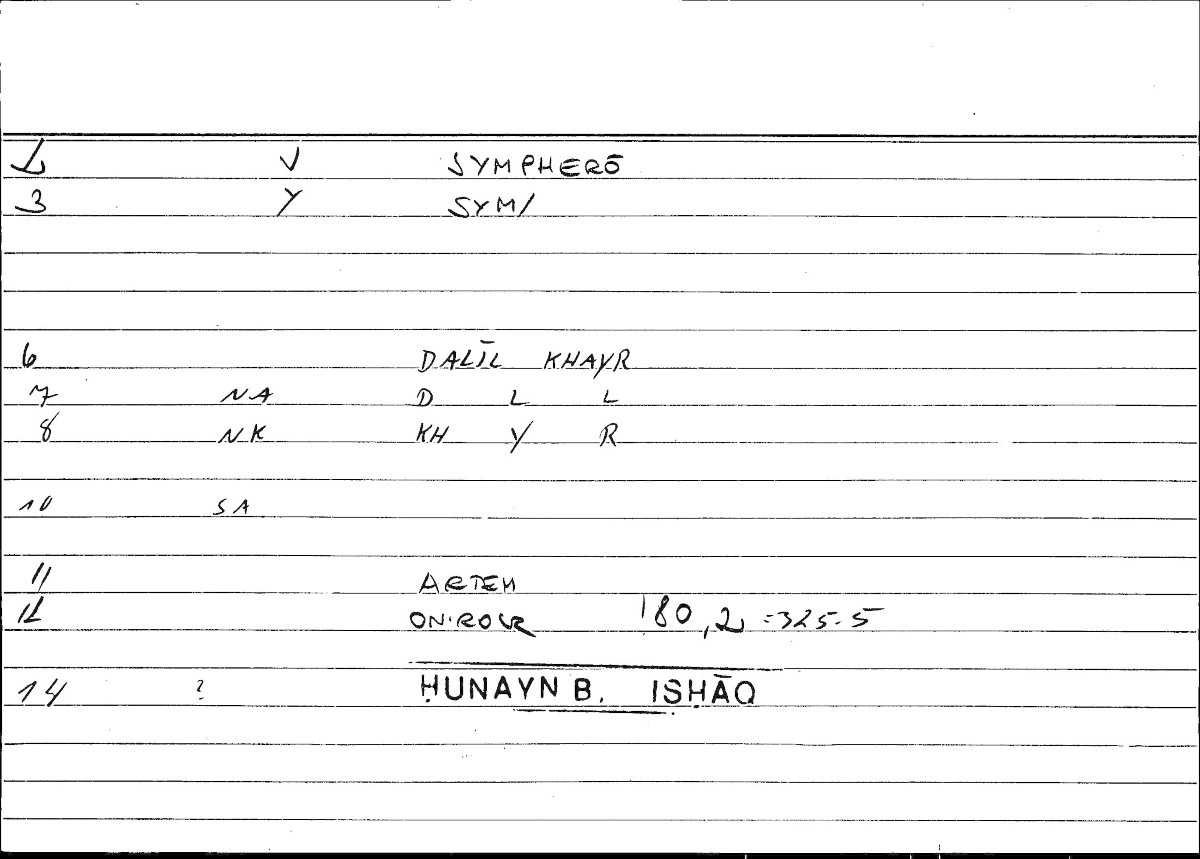 2 V SYMPHERŌ
3 Y SYM/
6 DALĪL KHAYR
7 NA D L L
8 NK KH Y R
10 SA
11 ARTEM
12 ONIROCR 180,2 =325.5
14 ? ḤUNAYN B. ISḤĀQ